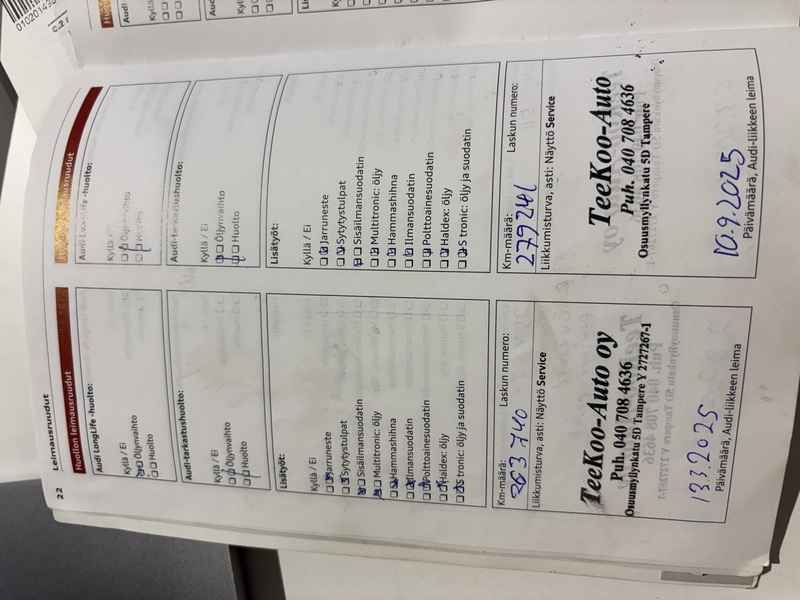 22 Leimausruudut
Huollon leimausruudut
Audi LongLife -huolto:
Kyllä / Ei
Öljynvaihto
Huolto
Audi-tarkastushuolto:
Kyllä / Ei
Öljynvaihto
Huolto
Lisätyöt:
Kyllä / Ei
Jarruneste
Sytytystulpat
Sisäilmansuodatin
Multitronic: öljy
Hammashihna
Ilmansuodatin
Polttoainesuodatin
Haldex: öljy
S tronic: öljy ja suodatin
Km-määrä: Laskun numero:
263740
Liikkumisturva, asti: Näyttö Service
TeeKoo-Auto oy
Puh. 040 708 4636
Osuusmyllynkatu 5D Tampere Y 2727267-1
13.3.2025
Päivämäärä, Audi-liikkeen leima
Audi LongLife -huolto:
Kyllä / Ei
Öljynvaihto
Huolto
Audi-tarkastushuolto:
Kyllä / Ei
Öljynvaihto
Huolto
Lisätyöt:
Kyllä / Ei
Jarruneste
Sytytystulpat
Sisäilmansuodatin
Multitronic: öljy
Hammashihna
Ilmansuodatin
Polttoainesuodatin
Haldex: öljy
S tronic: öljy ja suodatin
Km-määrä: Laskun numero:
279241
Liikkumisturva, asti: Näyttö Service
TeeKoo-Auto
Puh. 040 708 4636
Osuusmyllynkatu 5D Tampere
10.9.2025
Päivämäärä, Audi-liikkeen leima